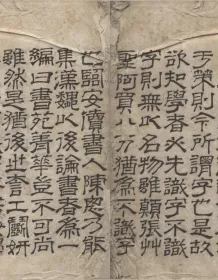 于策則今所謂字也是故
欲知學者必先識字不識
字則無以名物雖顛張艸
聖阿買八分猶為不識字
也臨安儥書人陳思乃能
集漢魏以後論書者為一
編曰書苑菁華豈不可尚
雖然是猶後世書工鬭妍